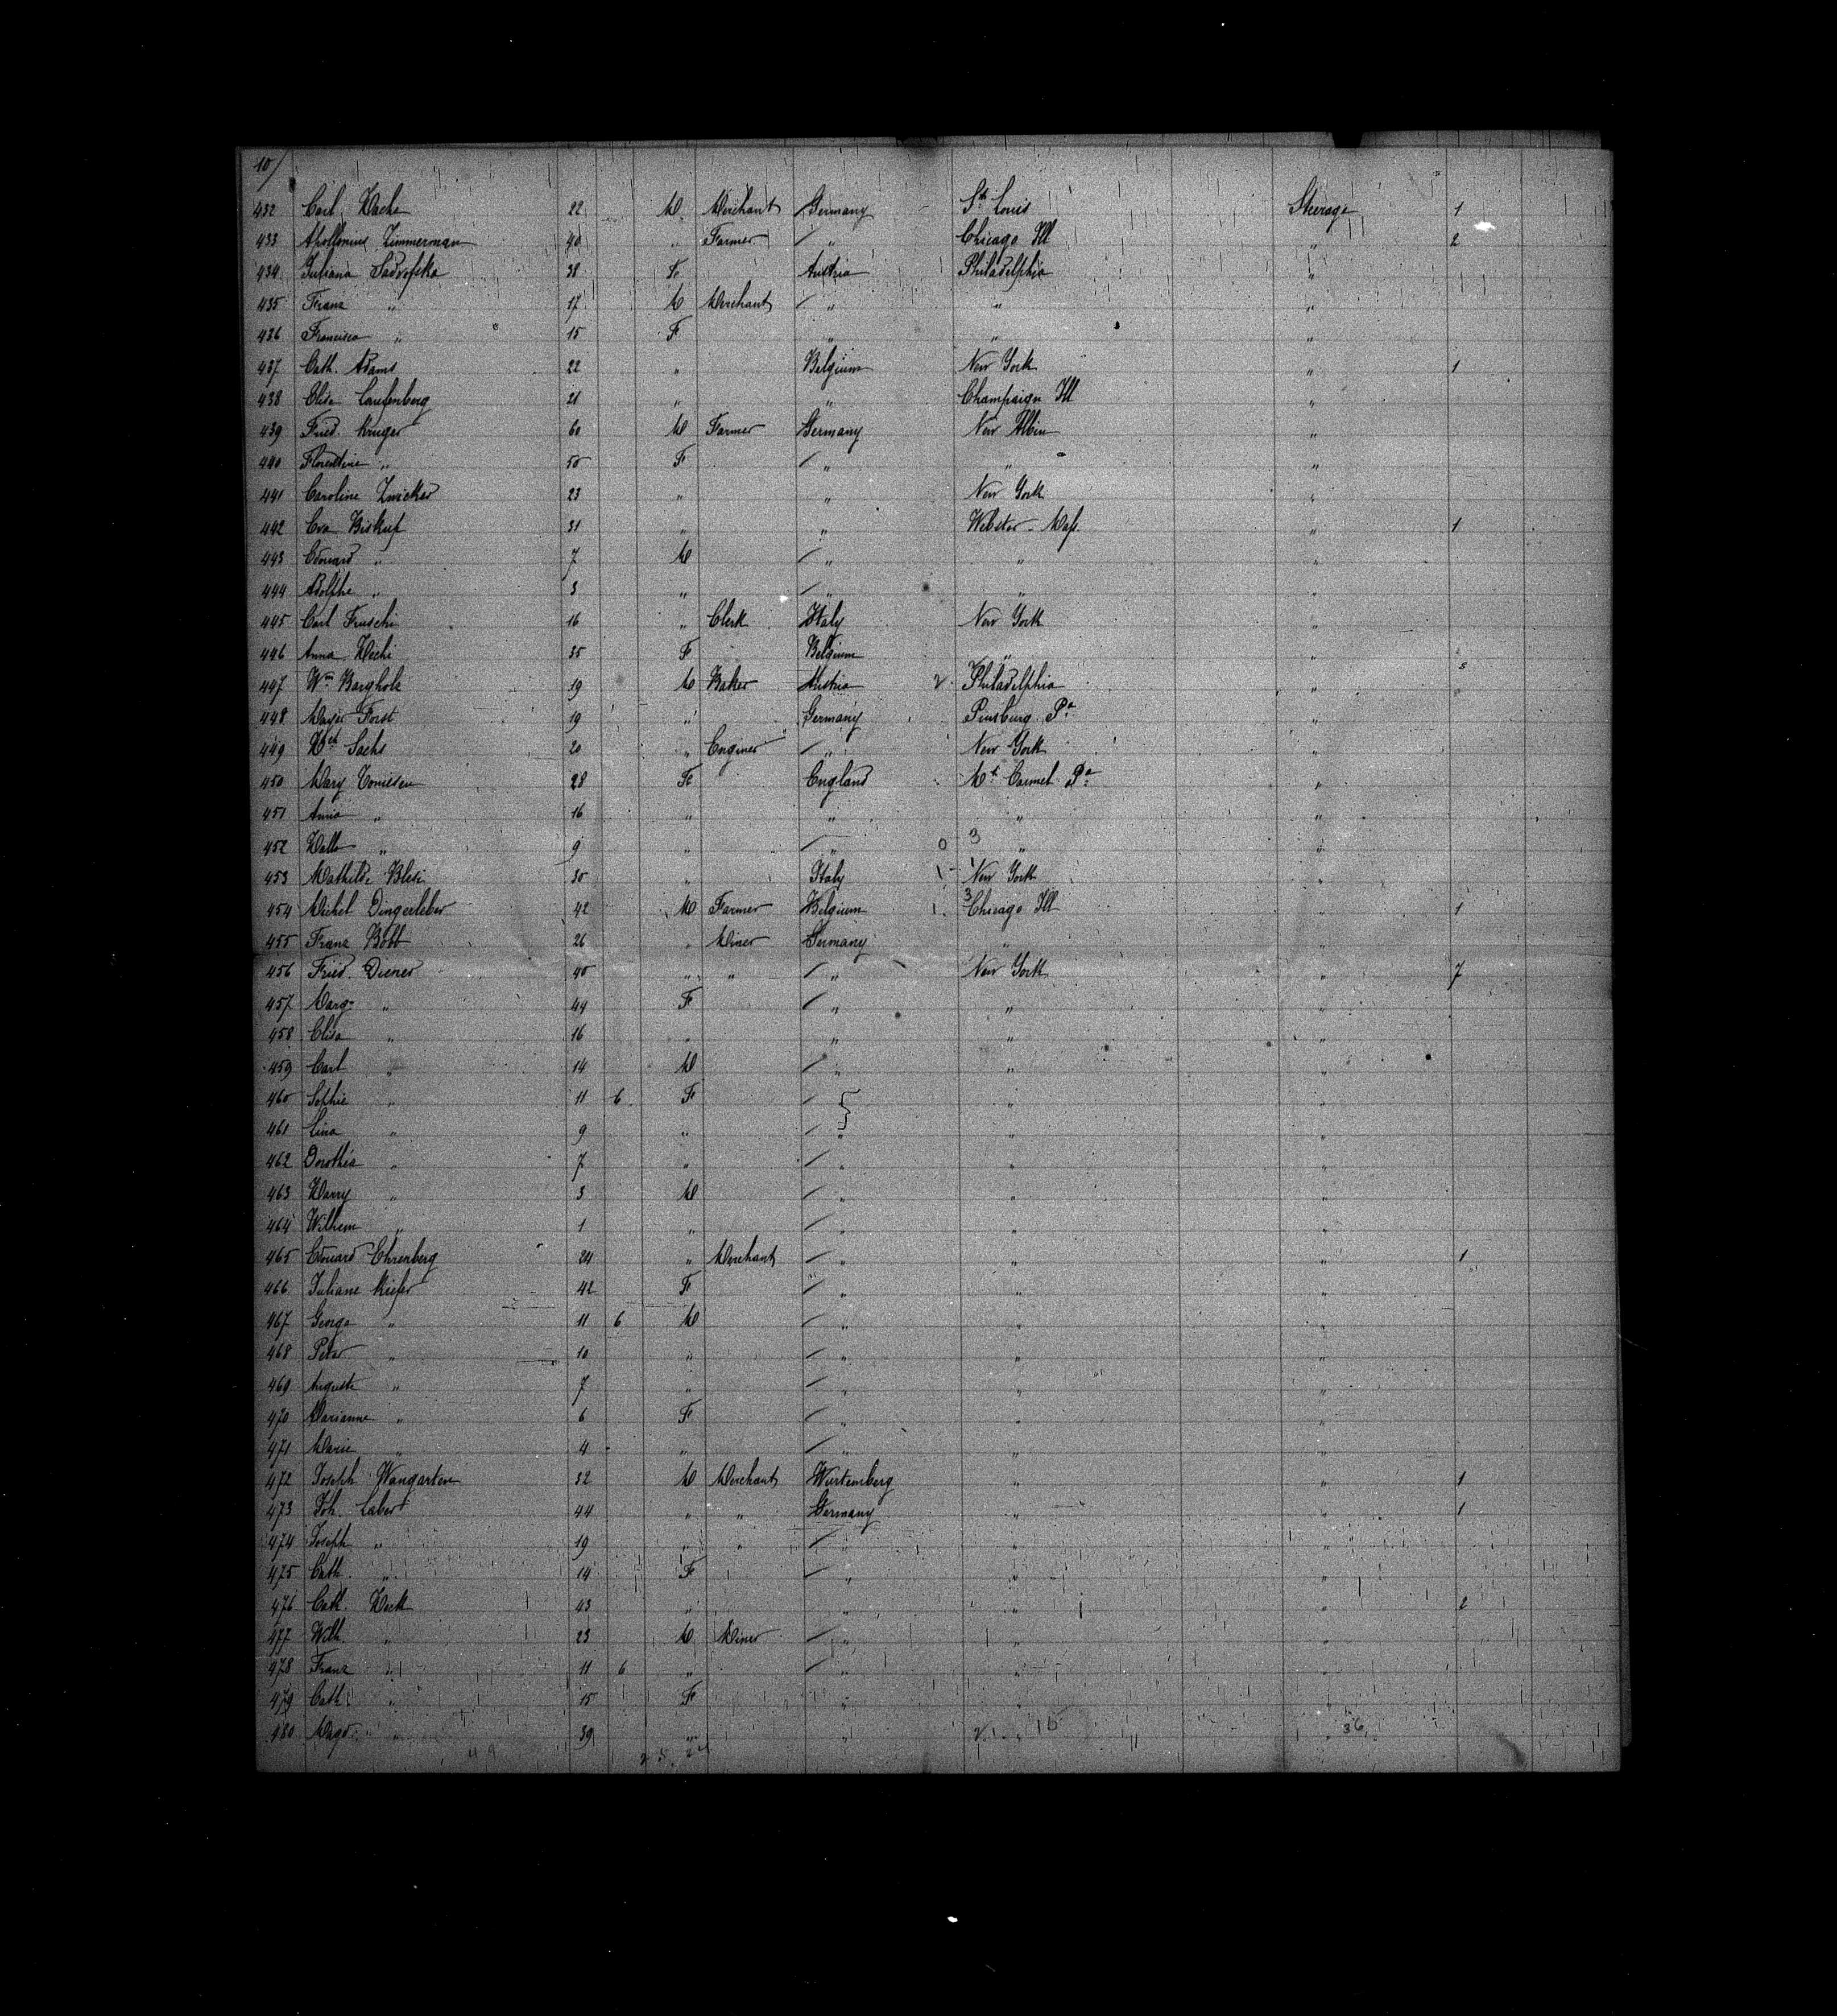 10/
432 Carl Hache 22 M. Merchant Germany St. Louis Steerage 1
433 Apollonius Zimmerman 40 " Farmer " Chicago Ill " 2
434 Juliana 38 F Austria Philadelphia "
435 Franz " 17 M Merchant " " "
436 Francisca " 15 F " " "
437 Cath. Adams 22 " Belgium New York " 1
438 Elise Laufenberg 21 " " Champaign Ill "
439 Fried. Kruger 60 M Farmer Germany New Albin "
440 Florentine " 50 F " " "
441 Caroline Zwicker 23 " " New York "
442 Eva Biskup 31 " " Webster Mass. " 1
443 Edouard " 7 M " " "
444 Adolphe " 3 " " " "
445 Carl Fruschi 16 " Clerk Italy New York "
446 Anna 35 F Belgium " "
447 Wm Bargholz 19 M Baker Austria 2 Philadelphia "
448 Mayer Forst 19 " Germany Pa "
449 Sachs 20 " Engineer " New York "
450 Mary 28 F England Mt Carmel Pa "
451 Annie " 16 " " " "
452 " 9 " " 0 3 " "
453 Mathilde Blesi 30 " Italy New York "
454 Michel Dingerleber 42 M Farmer Belgium 3 Chicago Ill " 1
455 Franz Bobb 26 " Miner Germany " "
456 Fried. Diener 40 " " " New York " 7
457 Marg. " 44 F " " "
458 Elisa " 16 " " " "
459 Carl " 14 M " " "
460 Sophie " 11 6 F " "
461 Lina " 9 " " " "
462 Dorothea " 7 " " " "
463 Harry " 3 M " " "
464 Wilhem " 1 " " " "
465 Edouard Ehrenberg 24 " Merchant " " " 1
466 Juliane Kiefer 42 F " " "
467 George " 11 6 M " " "
468 Peter " 10 " " " "
469 Auguste " 7 " " " "
470 Marianne " 6 F " " "
471 Marie " 4 " " " "
472 Joseph Wangarten 32 M Merchant Wurtemberg " " 1
473 Joh. Laber 44 " " Germany " " 1
474 Joseph " 19 " " " " "
475 Cath. " 14 F " " "
476 Cath. Heck 43 " " " " 2
477 Wilh. " 23 M Miner " " "
478 Franz " 11 6 " " " "
479 Cath. " 15 F " " "
480 Magd. " 39 " " 2 " 15 36 "